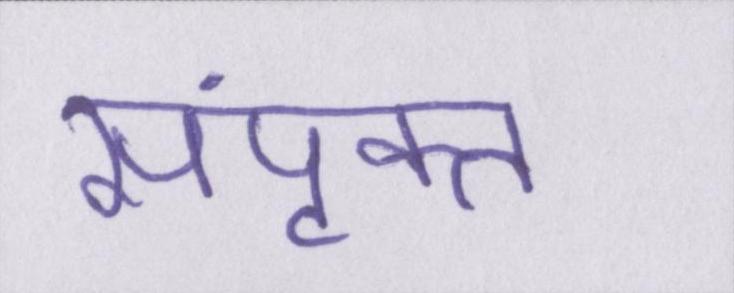 संपृक्त